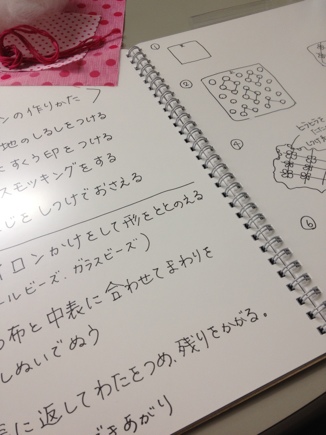 ンの作りかた
地のしるしをつける
すくう印をつける
スモッキングをする
じをしつけでおさえる
イロンかけをして形をととのえる
ールビーズ、ガラスビーズ)
布と中表に合わせてまわりを
しぬいでぬう
に返してわたをつめ、残りをかがる。
できあがり
①
②
④
⑥